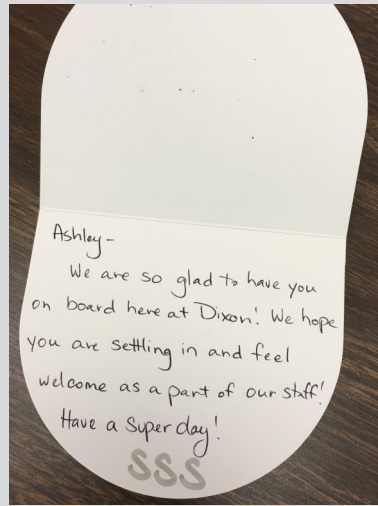 Ashley-
We are so glad to have you
on board here at Dixon! We hope
you are settling in and feel
welcome as a part of our staff!
Have a Super day!
SSS